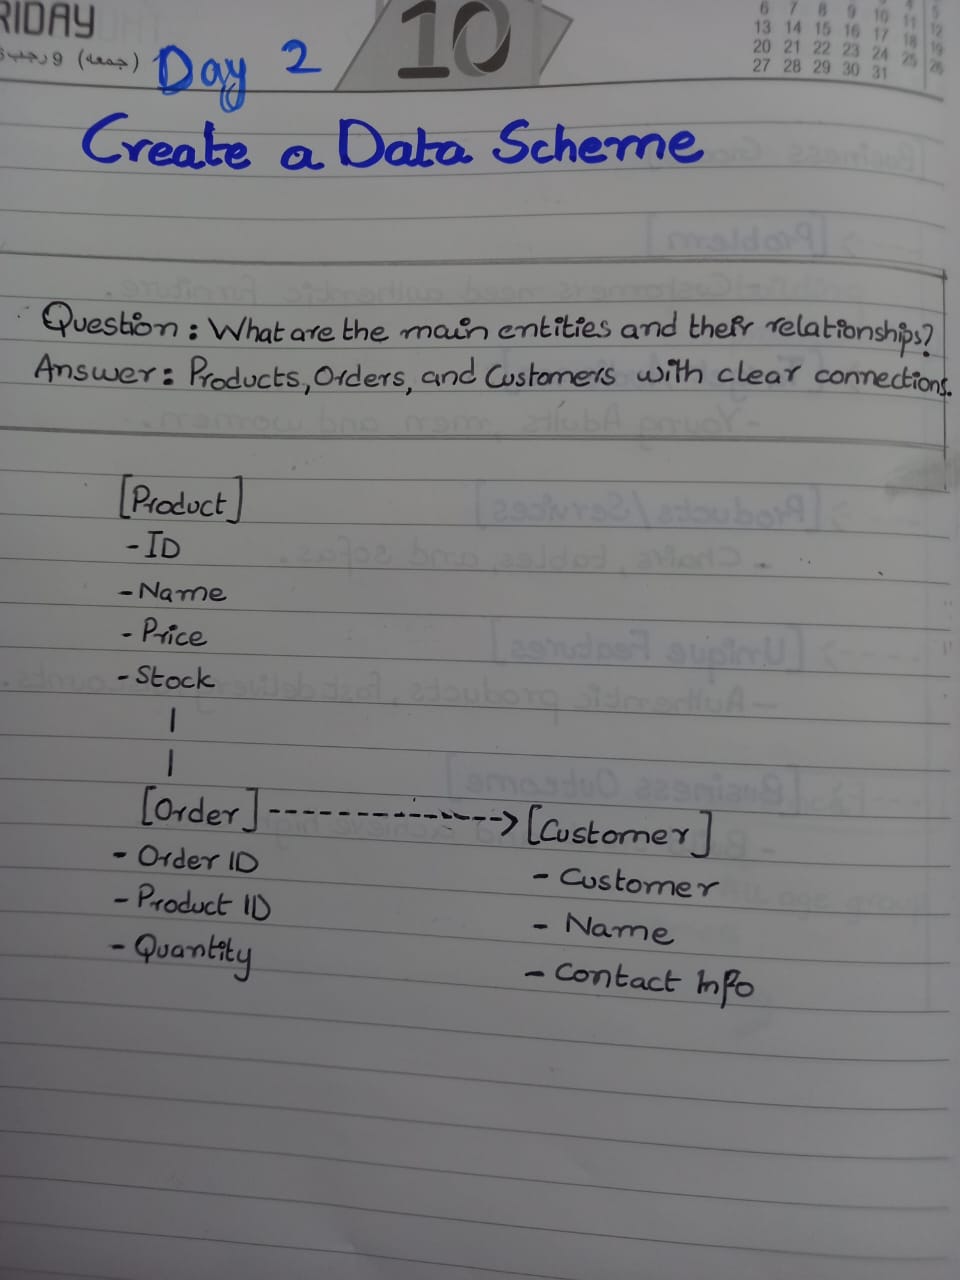 RIDAY
10
Day 2
6 7 8 9 10 11 12
13 14 15 16 17 18 19
20 21 22 23 24 25 26
27 28 29 30 31
Create a Data Scheme
Question: What are the main entities and their relationships?
Answer: Products, Orders, and Customers with clear connections.
[Product]
- ID
- Name
- Price
- Stock
|
|
[Order] ------------> [Customer]
- Order ID
- Customer
- Product ID
- Name
- Quantity
- Contact Info